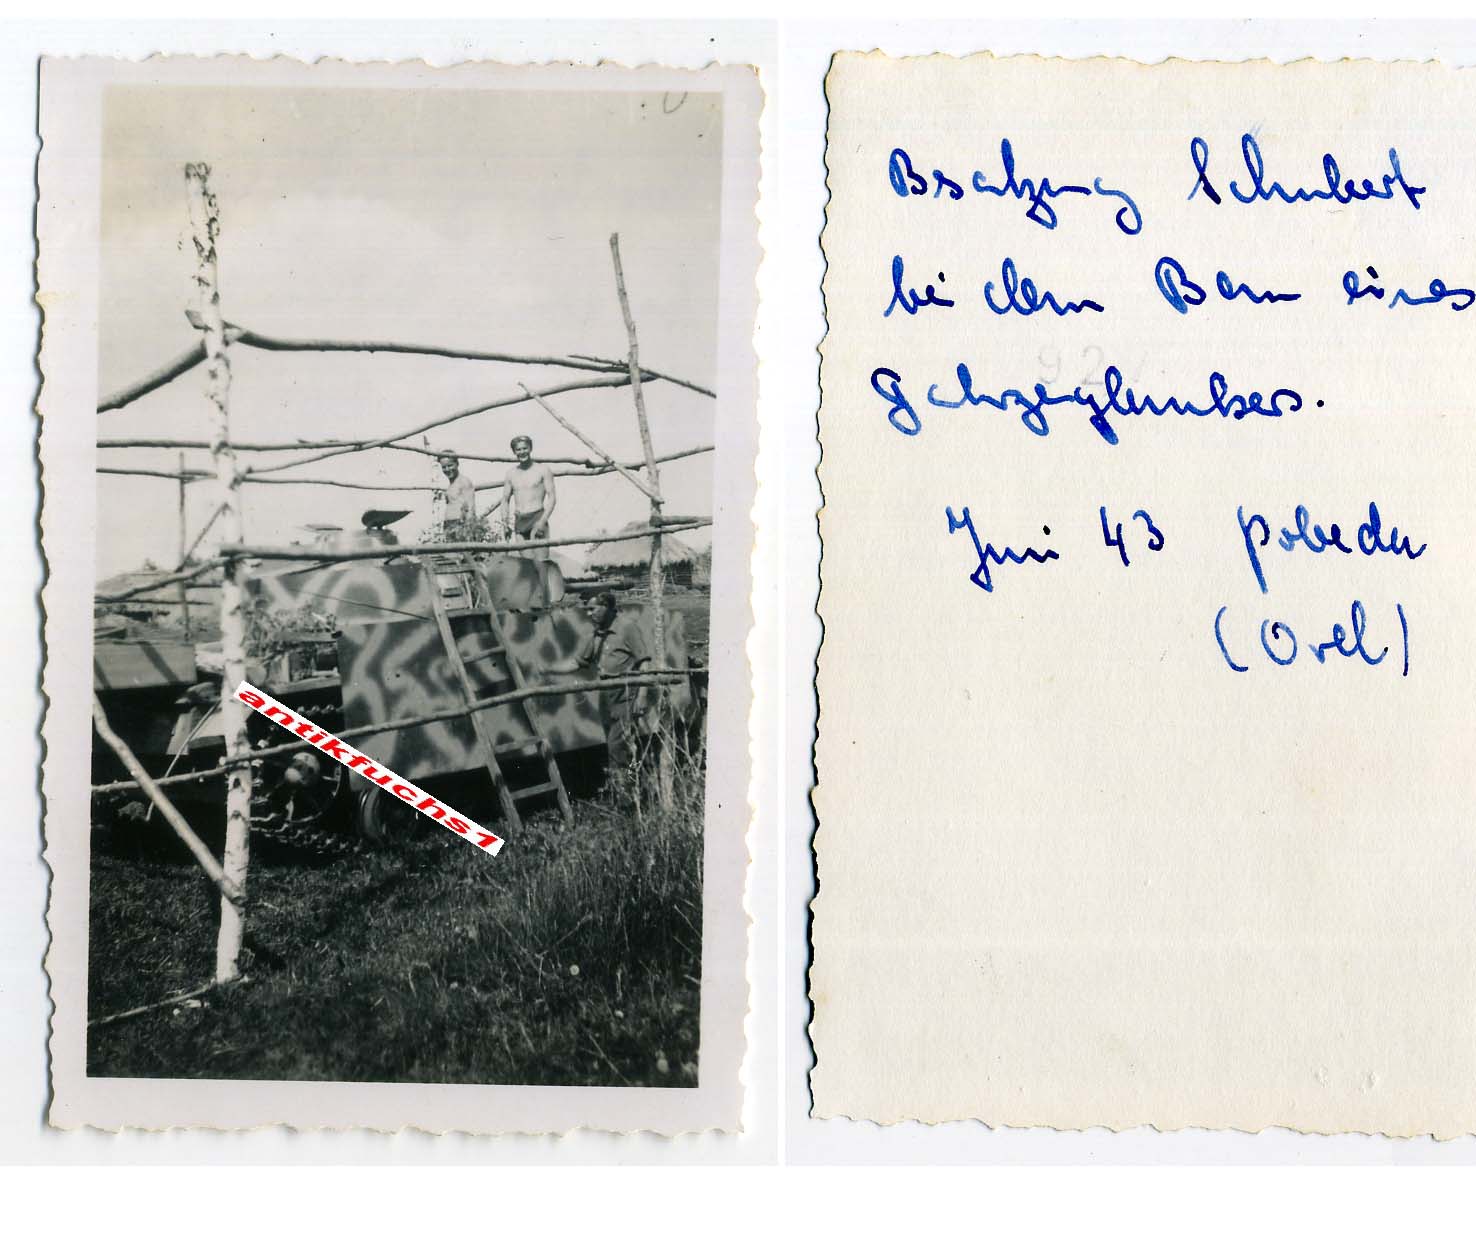 antikfuchs1
Besatzung Schubert
bei dem Bau eines
927
Juni 43 Pobeda
(Orel)